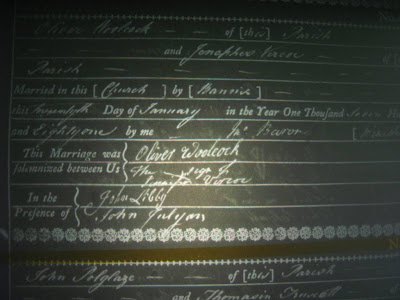 No
Oliver Woolcock — — of [this] Parish
— — — and Jenepher Vercoe — of
Parish — — — — — —
Married in this [Church] by [Banns] —
this Day of January in the Year One Thousand Seven
and Eighty one by me Jas Baron [
This Marriage was { Oliver Woolcock
Solemnized between Us { The sign of
Jenepher Vercoe
In the { John Libby
Presence of { John Julyan
N
John Polglaze — — of [this] Parish
and Thomasin